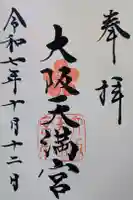 奉拝
大阪天満宮
令和七年十月十二日